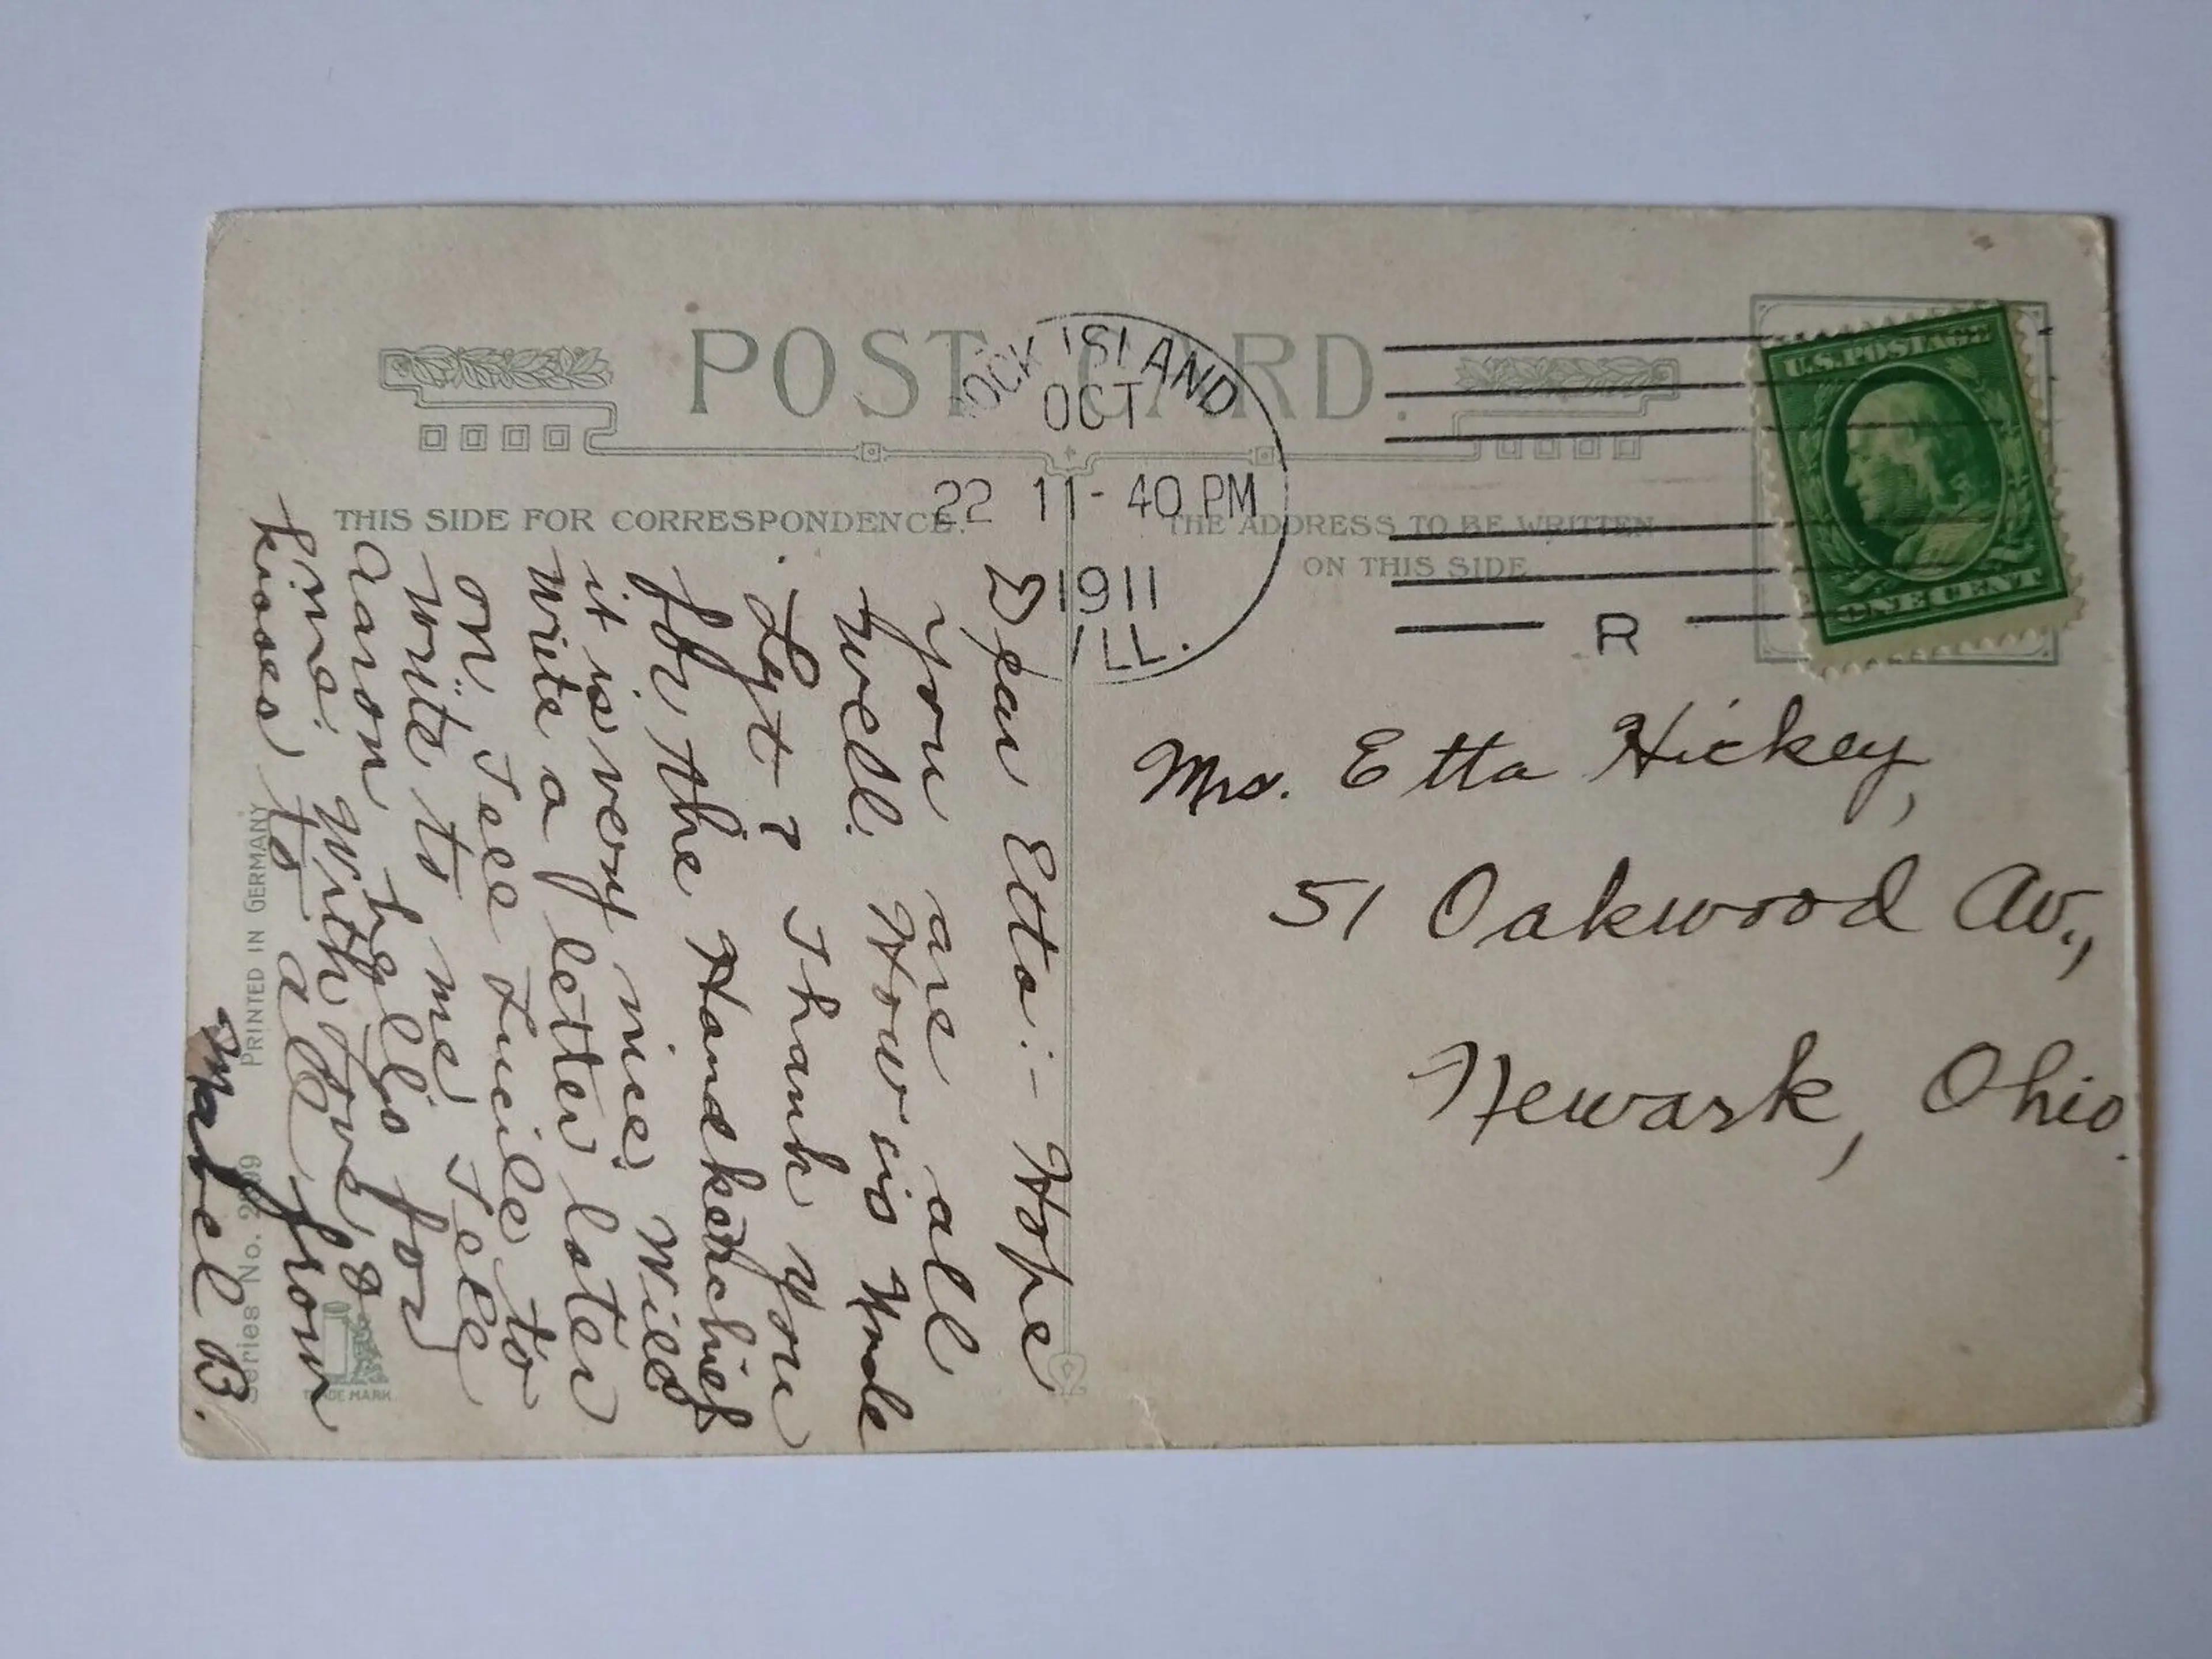 POST CARD.
ROCK ISLAND
OCT
22 11-40 PM
1911
ILL.
R
U.S. POSTAGE
ONE CENT
THIS SIDE FOR CORRESPONDENCE.
THE ADDRESS TO BE WRITTEN
ON THIS SIDE
Dear Etta:- Hope
you are all
well. How is Uncle
Lyt? Thank you
for the Handketchief
it is very nice. Will
write a letter later
on. Tell Lucile to
write to me. Tell
Aaron hello for
me. With love &
kisses to all from
Mabel B.
Mrs. Etta Hickey,
51 Oakwood Av.,
Newark, Ohio.
PRINTED IN GERMANY
Series No.
TRADE MARK.